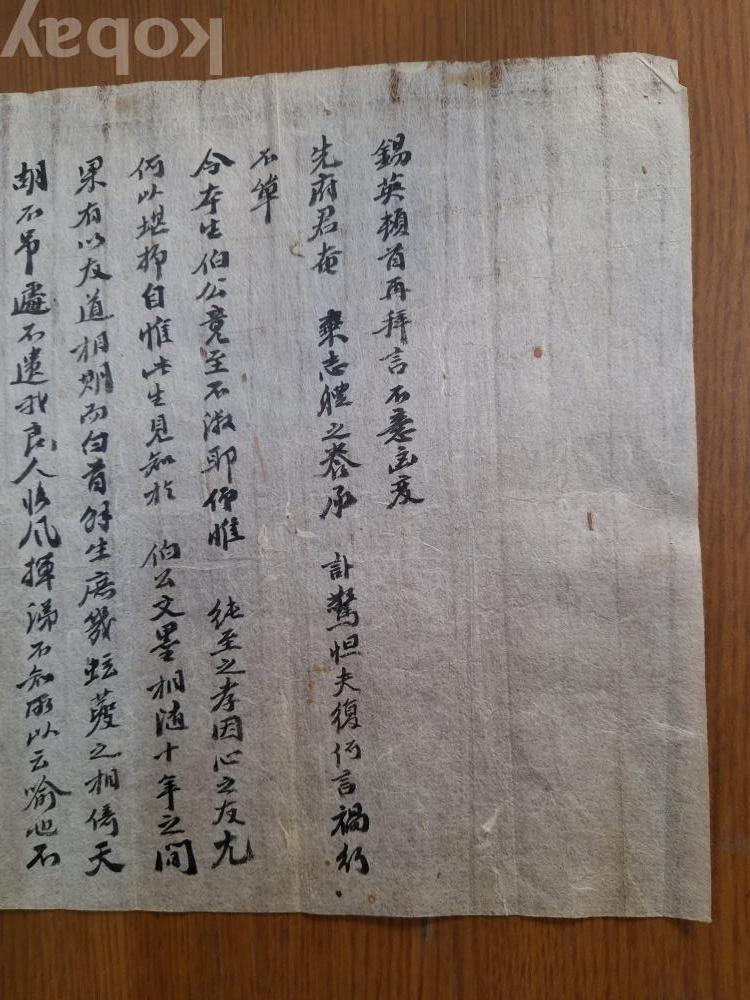 錫英頓首再拜言不意凶變
先府君奄 棄志體之養承 訃驚怛夫復何言禍行
不單
今本生伯公竟至不淑耶仰惟 純至之孝因心之友尤
何以堪抑自惟此生見知於 伯公文墨相隨十年之間
果有以友道相期而白首餘生庶幾蛩蟨之相倚天
胡不弔遽不遺我良人臨風揮涕不知所以云喻也不
kobay